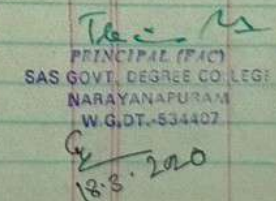 PRINCIPAL (FAC)
SAS GOVT. DEGREE COLLEGE
NARAYANAPURAM
W.G.DT.-534407
18.3.2020